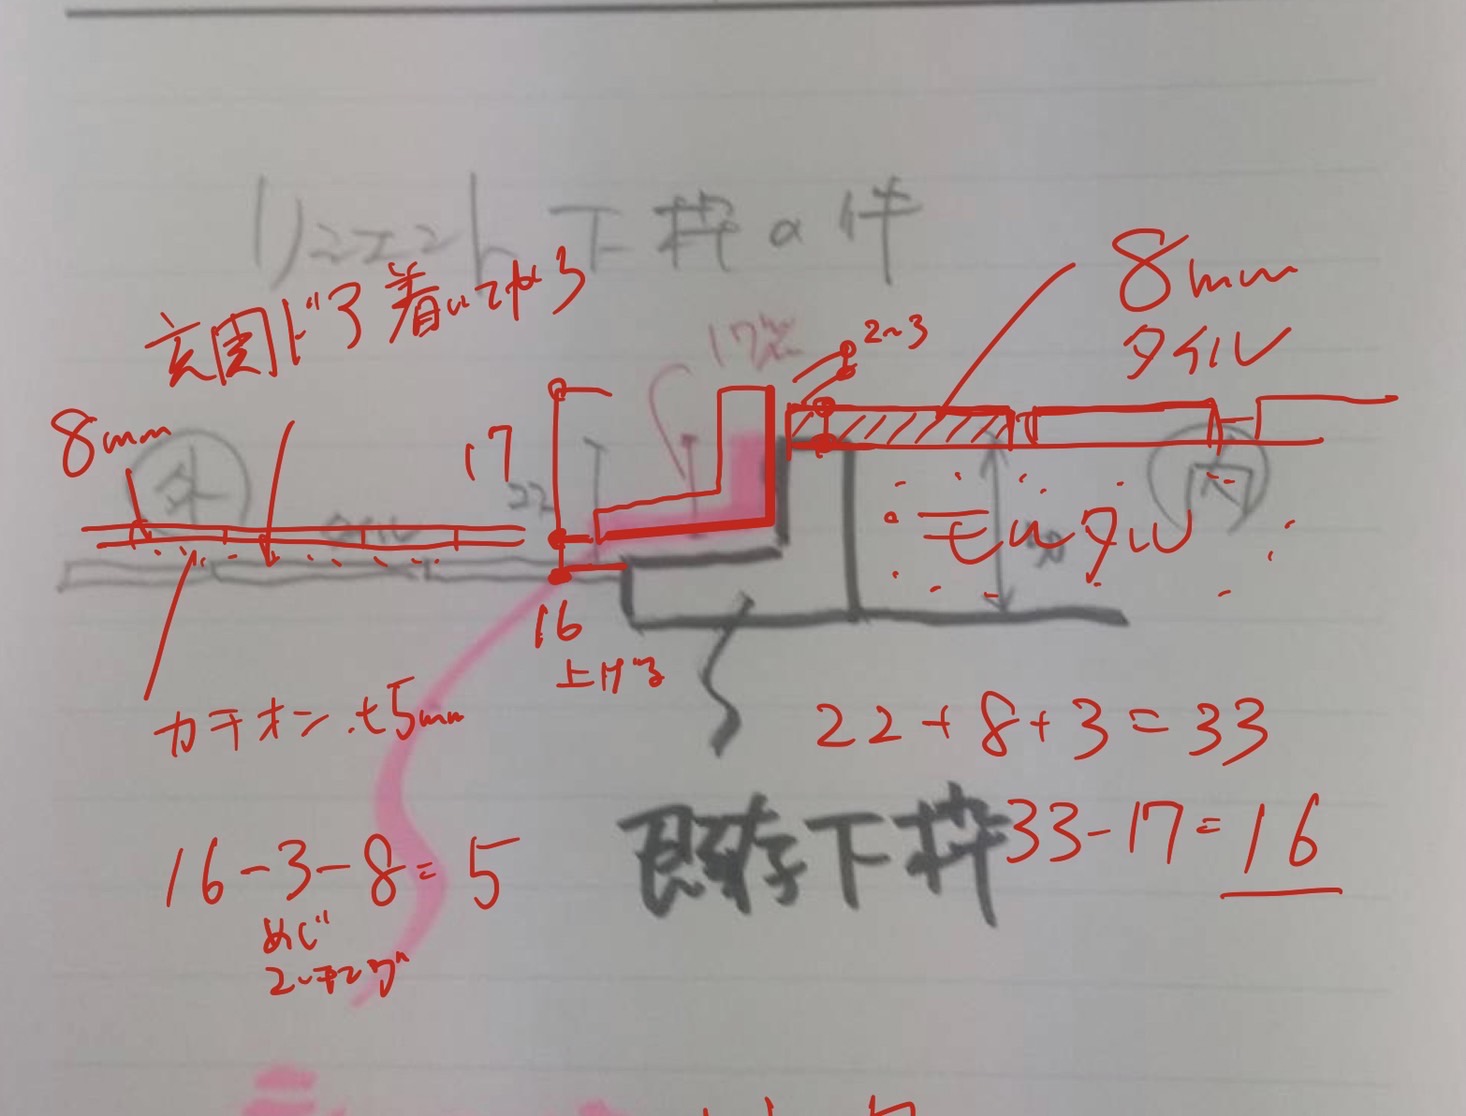 リシェント下枠の件
玄関ドア着いてから
8mm
タイル
2~3
17%
8mm
外
17
22
内
タイル
モルタル
30
16
上げる
カチオン .t5mm
22+8+3=33
既存下枠
33-17=16
16-3-8=5
めじ
コーキング